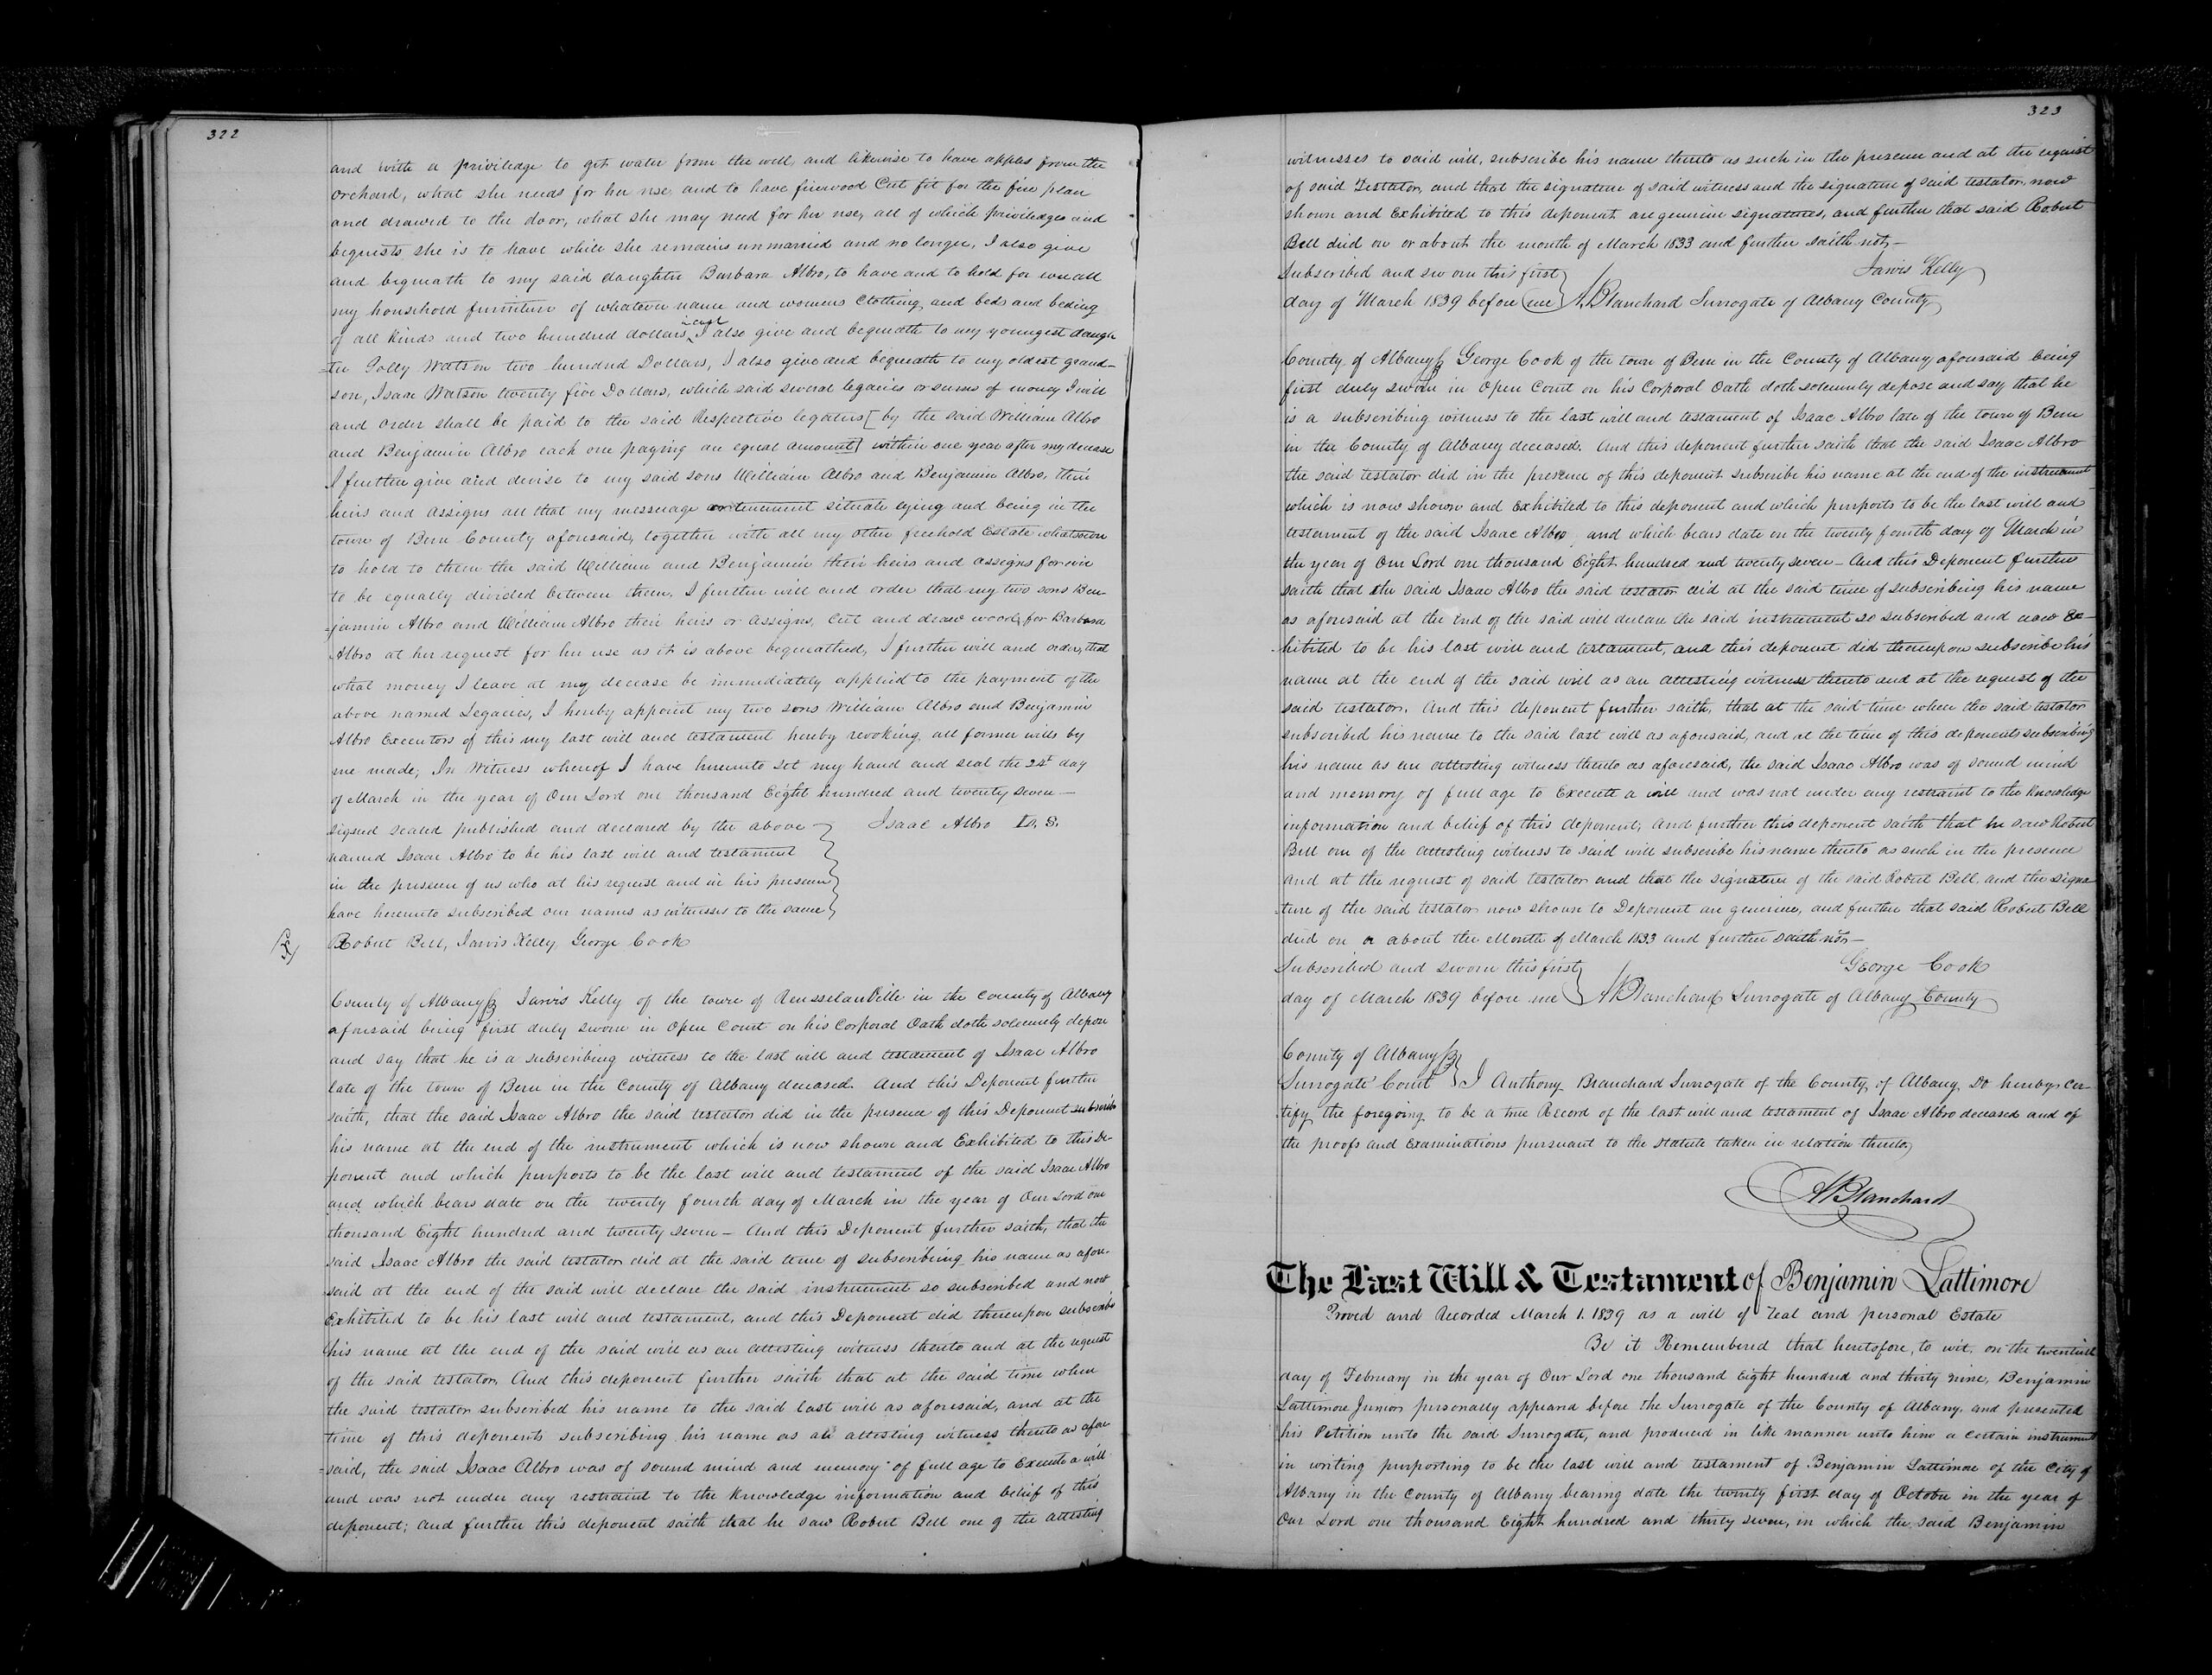 322
and with a priviledge to get water from the well, and likewise to have apples from the
orchard, what she needs for her use, and to have firewood Cut fit for the fire place
and drawed to the door, what she may need for her use, all of which priviledges and
bequests she is to have while she remains unmarried and no longer, I also give
and bequeath to my said daughter Barbara Albro, to have and to hold for ever all
my household furniture of whatever name and womens Clothing, and beds and beding
of all kinds and two hundred dollars in cash I also give and bequeath to my youngest daugh
=ter Polly Watson two hundred Dollars, I also give and bequeath to my oldest grand-
son, Isaac Watson twenty five Dollars, which said several legacies or sums of money I will
and order shall be paid to the said Respective legatees [by the said William Albro
and Benjamin Albro each one paying an equal amount] within one year after my decease
I further give and devise to my said sons William Albro and Benjamin Albro, their
heirs and assigns all that my messuage or tenement situate lying and being in the
town of Bern County aforesaid, together with all my other freehold Estate whatsoever
to hold to them the said William and Benjamin their heirs and assigns forever
to be equally divided between them, I further will and order that my two sons Ben-
-jamin Albro and William Albro their heirs or assigns, Cut and draw wood, for Barbara
Albro at her request for her use as it is above bequeathed, I further will and order, that
what money I leave at my decease be immediately applied to the payment of the
above named Legacies, I hereby appoint my two sons William Albro and Benjamin
Albro Executors of this my last will and testament hereby revoking all former wills by
me made; In Witness whereof I have hereunto set my hand and seal the 24t day
of March in the year of Our Lord one thousand Eight hundred and twenty seven—
signed sealed published and declared by the above Isaac Albro L. S.
named Isaac Albro to be his last will and testament
in the presence of us who at his request and in his presence
have hereunto subscribed our names as witnesses to the same
Robert Bell, Jarvis Kelly, George Cook
County of Albany ss Jarvis Kelly of the town of RensselaerVille in the County of Albany
aforesaid being first duly sworn in Open Court on his Corporal Oath doth solemnly depose
and say that he is a subscribing witness to the last will and testament of Isaac Albro
late of the town of Bern in the County of Albany deceased. And this Deponent further
saith, that the said Isaac Albro the said testator did in the presence of this Deponent subscribe
his name at the end of the instrument which is now shown and Exhibited to this De-
ponent and which purports to be the last will and testament of the said Isaac Albro
and which bears date on the twenty fourth day of March in the year of Our Lord one
thousand Eight hundred and twenty seven— And this Deponent further saith, that the
said Isaac Albro the said testator did at the said time of subscribing his name as afore-
said at the end of the said will declare the said instrument so subscribed and now
Exhibited to be his last will and testament, and this Deponent did thereupon subscribe
his name at the end of the said will as an attesting witness thereto and at the request
of the said testator. And this deponent further saith that at the said time when
the said testator subscribed his name to the said last will as aforesaid, and at the
time of this deponents subscribing his name as an attesting witness thereto as afore
=said, the said Isaac Albro was of sound mind and memory of full age to Execute a will
and was not under any restraint to the knowledge information and belief of this
deponent; and further this deponent saith that he saw Robert Bell one of the attesting
323
witnesses to said will, subscribe his name thereto as such in the presence and at the request
of said Testator, and that the signature of said witness and the signature of said testator, now
shown and Exhibited to this deponent are genuine signatures, and further that said Robert
Bell died on or about the month of March 1833 and further saith not—
Subscribed and sworn this first Jarvis Kelly
day of March 1839 before me A. Blanchard Surrogate of Albany County
County of Albany ss George Cook of the town of Bern in the County of Albany aforesaid being
first duly sworn in Open Court on his Corporal Oath doth solemnly depose and say that he
is a subscribing witness to the last will and testament of Isaac Albro late of the town of Bern
in the County of Albany deceased. And this deponent further saith that the said Isaac Albro
the said testator did in the presence of this deponent subscribe his name at the end of the instrument
which is now shown and Exhibited to this deponent and which purports to be the last will and
testament of the said Isaac Albro, and which bears date on the twenty fourth day of March in
the year of Our Lord one thousand Eight hundred and twenty seven— And this Deponent further
saith that the said Isaac Albro the said testator did at the said time of subscribing his name
as aforesaid at the end of the said will declare the said instrument so subscribed and now Ex-
-hibited to be his last will and testament, and this deponent did thereupon subscribe his
name at the end of the said will as an attesting witness thereto and at the request of the
said testator. And this deponent further saith, that at the said time when the said testator
subscribed his name to the said last will as aforesaid, and at the time of this deponents subscribing
his name as an attesting witness thereto as aforesaid, the said Isaac Albro was of sound mind
and memory of full age to Execute a will and was not under any restraint to the knowledge
information and belief of this deponent; And further this deponent saith that he saw Robert
Bell one of the attesting witness to said will subscribe his name thereto as such in the presence
and at the request of said testator and that the signature of the said Robert Bell, and the signa
=ture of the said testator now shown to Deponent are genuine, and further that said Robert Bell
died on or about the Month of March 1833 and further saith not—
Subscribed and sworn this first George Cook
day of March 1839 before me A Blanchard Surrogate of Albany County
County of Albany ss
Surrogate Court I Anthony Blanchard Surrogate of the County of Albany Do hereby cer-
-tify the foregoing to be a true Record of the last will and testament of Isaac Albro deceased and of
the proofs and Examinations pursuant to the statute taken in relation thereto,
A Blanchard
The Last Will & Testament of Benjamin Lattimore
Proved and Recorded March 1. 1839 as a will of real and personal Estate
Be it Remembered that heretofore, to wit, on the twentieth
day of February in the year of Our Lord one thousand Eight hundred and thirty nine, Benjamin
Lattimore Junior personally appeared before the Surrogate of the County of Albany, and presented
his Petition unto the said Surrogate, and produced in like manner unto him a certain instrument
in writing purporting to be the last will and testament of Benjamin Lattimore of the City of
Albany in the County of Albany bearing date the twenty first day of October in the year of
Our Lord one thousand Eight hundred and thirty seven, in which the said Benjamin